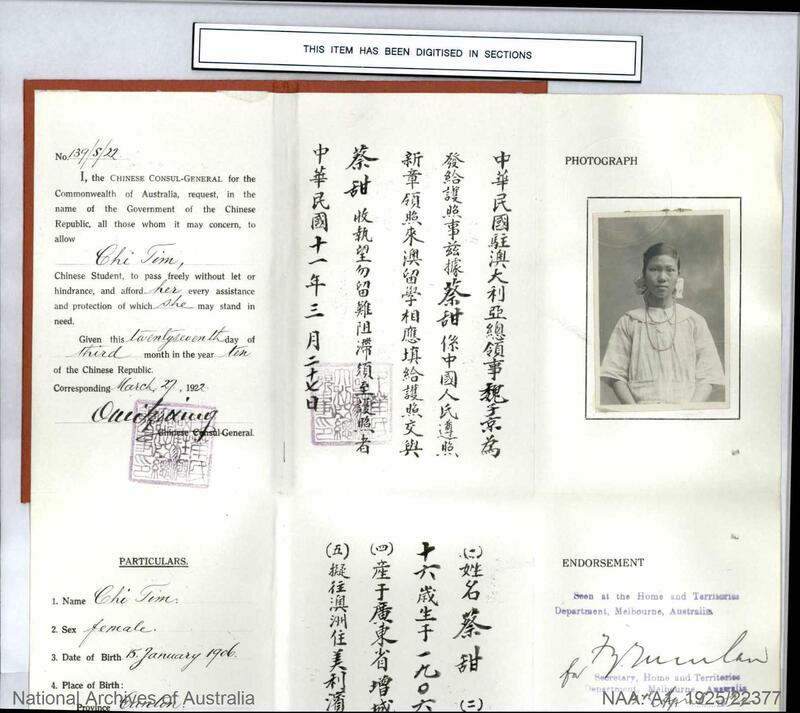 THIS ITEM HAS BEEN DIGITISED IN SECTIONS
No. 139/S/22
I, the CHINESE CONSUL-GENERAL for the
Commonwealth of Australia, request, in the
name of the Government of the Chinese
Republic, all those whom it may concern, to
allow
Chi Tim,
Chinese Student, to pass freely without let or
hindrance, and afford her every assistance
and protection of which she may stand in
need.
Given this twentyseventh day of
third month in the year ten
of the Chinese Republic.
Corresponding March 27, 1922
Chinese Consul-General.
中華民國駐澳大利亞總領事魏子京為
發給護照事茲據蔡甜係中國人民遵照
新章領照來澳留學相應填給護照交與
蔡甜收執望勿留難阻滯須至護照者
中華民國十一年三月二十七日
PHOTOGRAPH
PARTICULARS.
1. Name Chi Tim.
2. Sex female.
3. Date of Birth 15 January 1906.
4. Place of Birth:
Province Canton.
姓名蔡甜
十六歲生于一九〇六
(四)產于廣東省增城
(五)擬往澳洲住美利濱
ENDORSEMENT
Seen at the Home and Territories
Department, Melbourne, Australia.
for
Secretary, Home and Territories
Department, Melbourne, Australia
National Archives of Australia
NAA: A1, 1925/22377